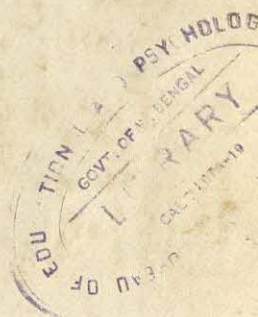 EAU OF EDU TION L A D PSY HOLOG
GOVT. OF W. BENGAL
L RARY
CAL UTTA-19